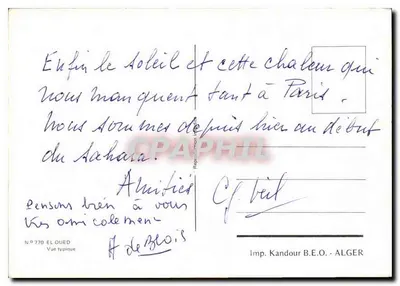 Enfin le soleil et cette chaleur qui
nous manquent tant à Paris.
Nous sommes depuis hier au début
du Sahara.
CPAPHIL
Amitiés
pensons bien à vous
très amicalement
A de Blois
Nº 770 EL OUED
Vue typique
Imp. Kandour B.E.O. - ALGER